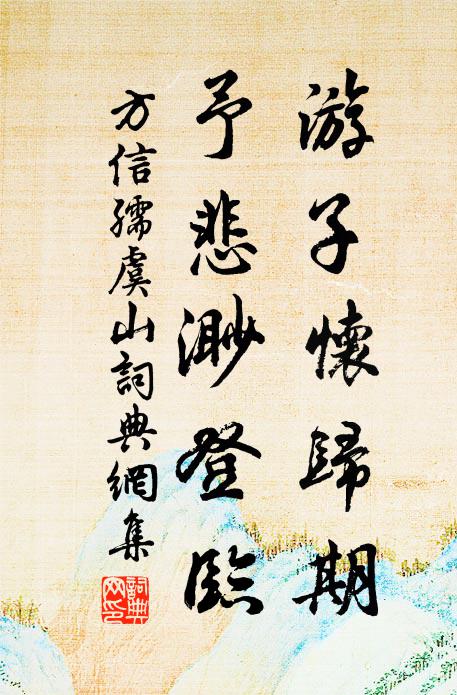 游子懷歸期
予悲渺登臨
方信孺虞山詞典網集
詞典網印